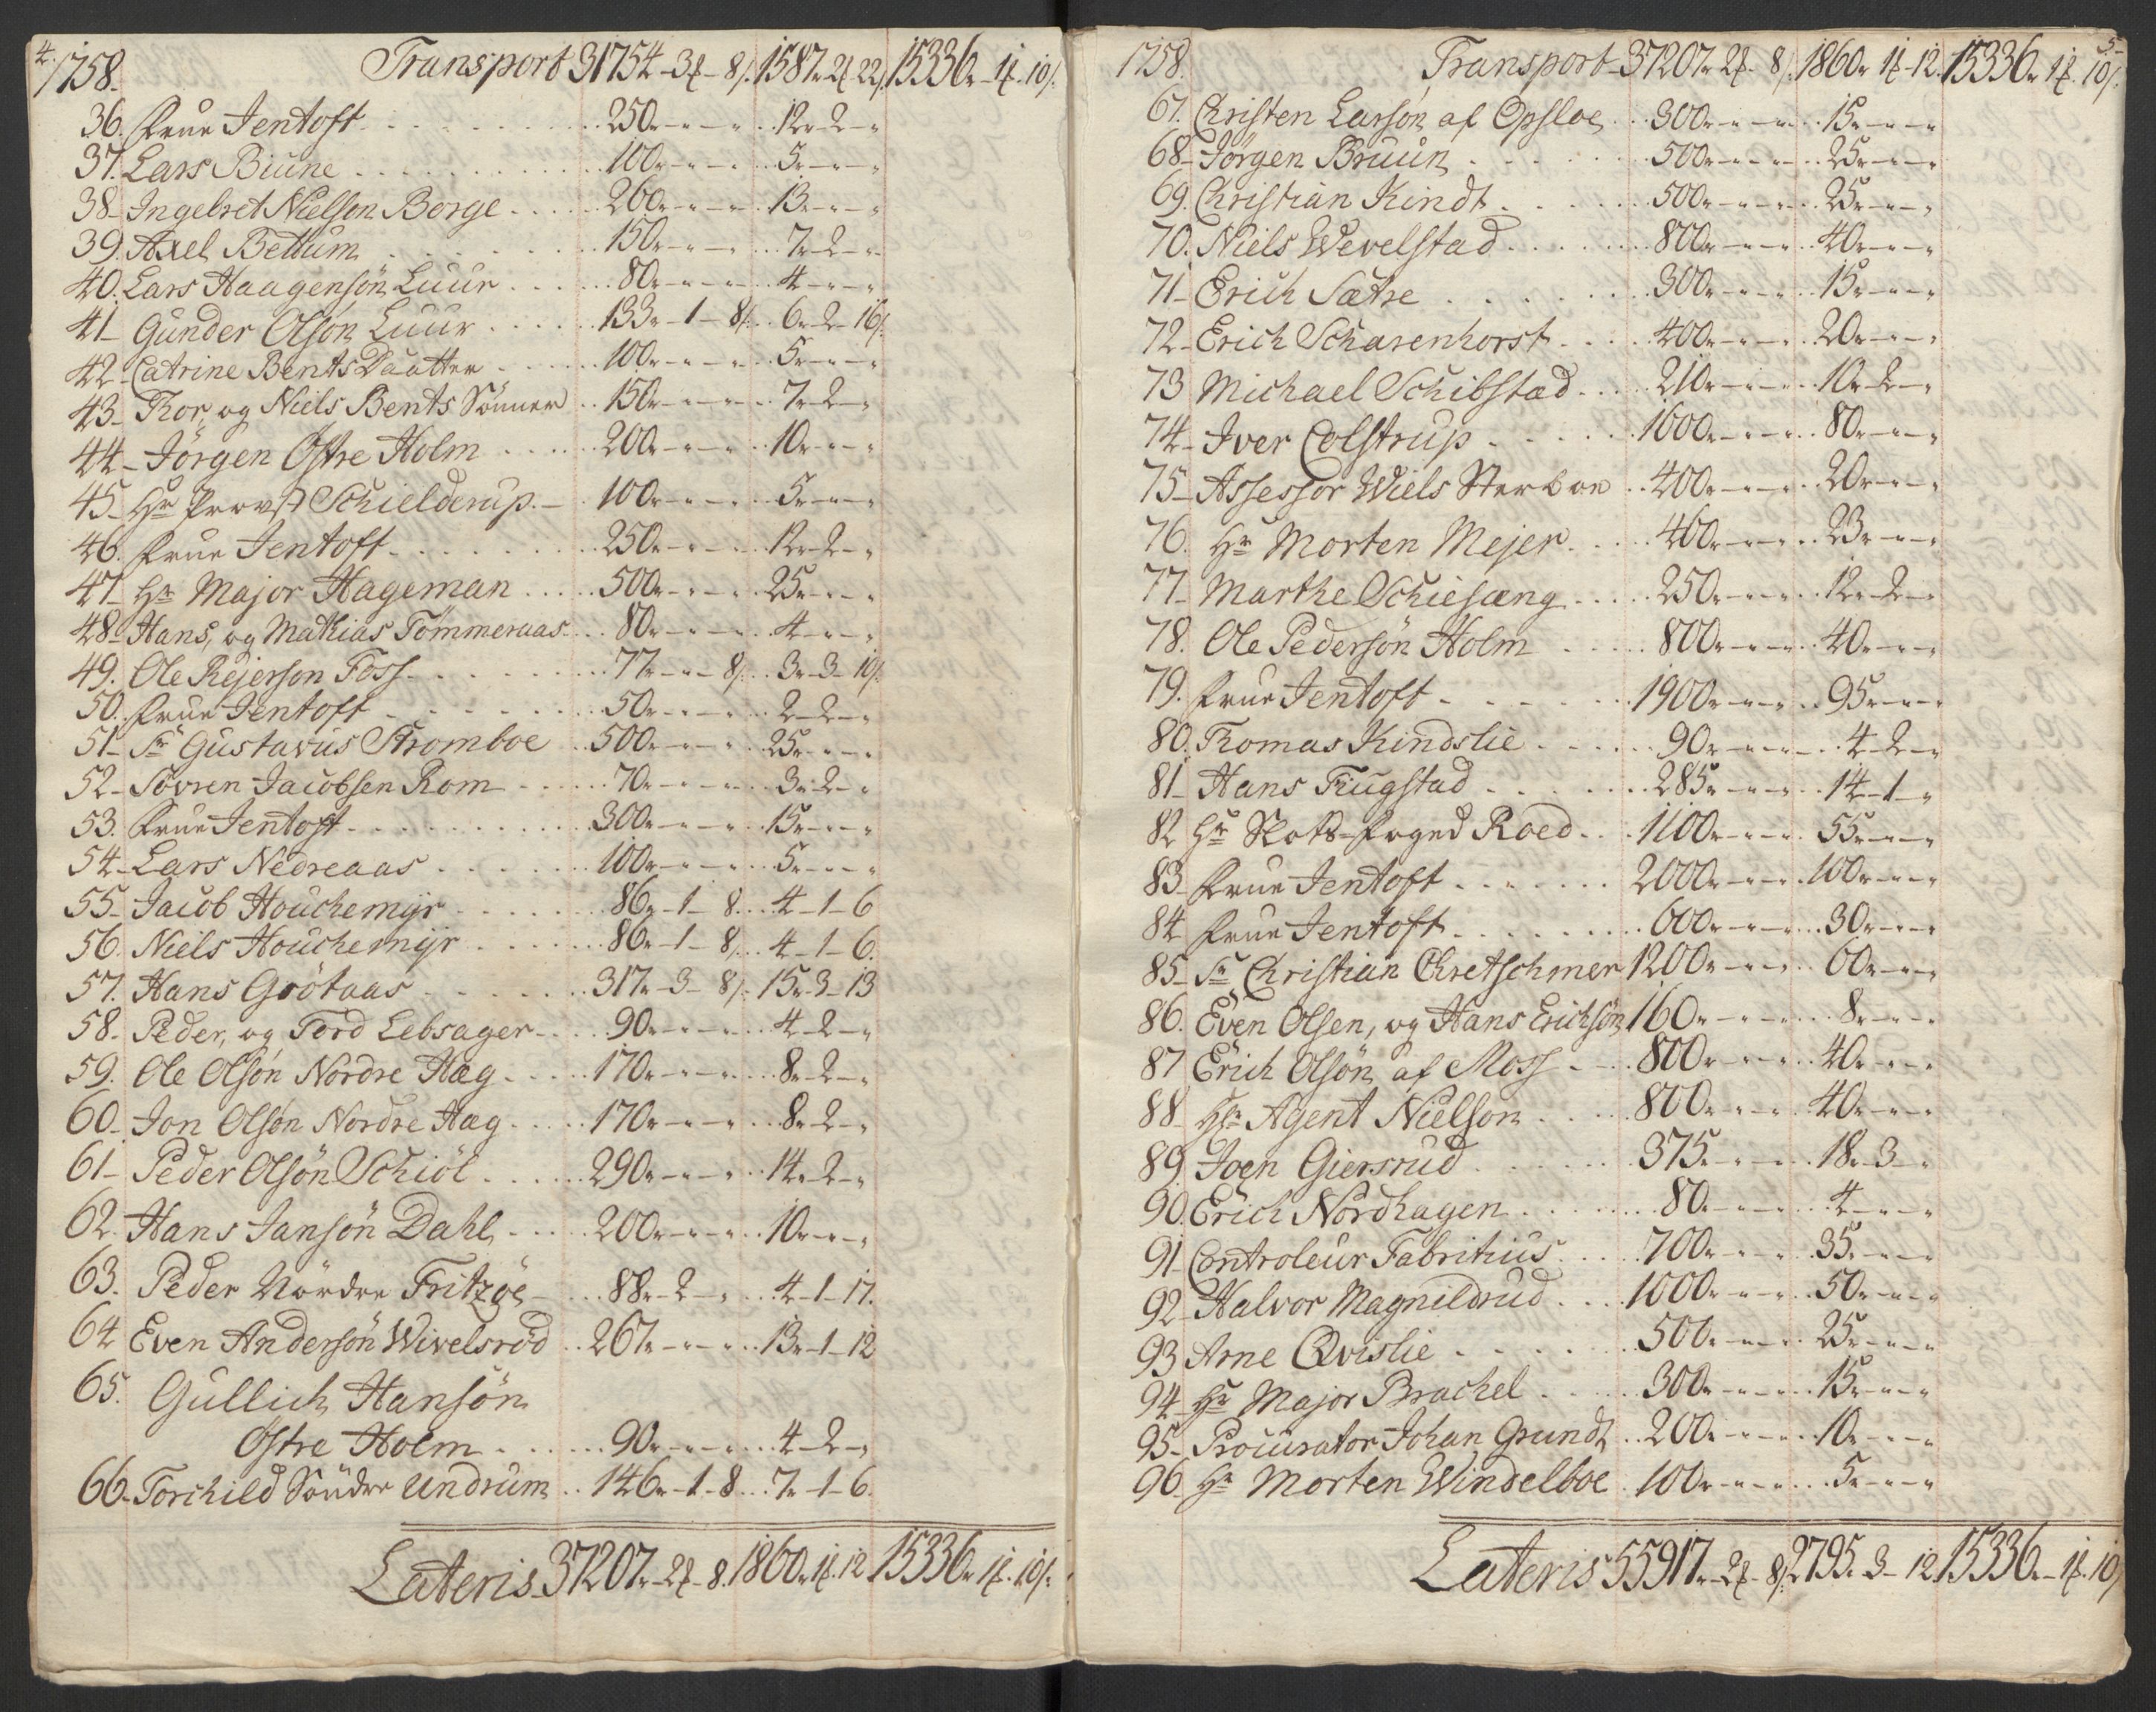 4.
1758. Transport 31754 - 3 - 8 1587 - 2 - 22 15336 - 1 - 10
36. Frue Jentoft 250 12 - 2
37. Lars Biune 100 5
38 Ingebret Nielson Borge 260 13
39. Axel Bettum 150 7 - 2
40. Lars Haagensøn Luur 80 4
41 Gunder Olsøn Luur 133 - 1 - 8 6 - 2 - 16
42 Catrine Bents Daatter 100 5
43 Thor, og Niels Bents Sønner 150 7 - 2
44 Jörgen Østre Holm 200 10
45 Hr Provst Schielderup 100 5
46. Frue Jentoft 250 12 - 2
47 Hr Major Hageman 500 25
48 Hans, og Mathias Tömmeraas 80 4
49. Ole Rejerson Foss 77 - " - 8 3 - 3 - 10
50. Frue Jentoft 50 2 - 2
51 Sr Gustavus Stromboe 500 25
52 Sövren Jacobsen Rom 70 3 - 2
53. Frue Jentoft 300 15
54 Lars Nedreaas 100 5
55 Jacob Houchemÿr 86 - 1 - 8 4 - 1 - 6
56. Niels Houchemÿr 86 - 1 - 8 4 - 1 - 6
57. Hans Grötaas 317 - 3 - 8 15 - 3 - 13
58. Peder, og Tord Lebsager 90 4 - 2
59. Ole Olsøn Nordre Hæg 170 8 - 2
60 Jon Olsøn Nordre Hæg 170 8 - 2
61 Peder Olsøn Schiöl 290 14 - 2
62. Hans Jansøn Dahl 200 10
63. Peder Nördre Fritzøe 88 - 2 4 - 1 - 17
64 Even Andersøn Wivelsröd 267 13 - 1 - 12
65. Gullich Hansøn
Østre Holm 90 4 - 2
66. Torchild Söndre Undrum 146 - 1 - 8 7 - 1 - 6
Lateris 37207 - 2 - 8 1860 - 1 - 12 15336 - 1 - 10
5
1758. Transport 37207 - 2 - 8 1860 - 1 - 12 15336 - 1 - 10
67. Christen Larsøn af Opsloe 300 15
68 Jörgen Bruun 500 25
69. Christian Kindt 500 25
70. Niels Wevelstad 800 40
71 Erich Sætre 300 15
72 Erich Scharenhorst 400 20
73 Michael Schibstad 210 10 - 2
74 Iver Colstrup 1600 80
75 Assessor Wiels Sterboe 400 20
76. Hr Morten Mejer 460 23
77 Marthe Schiesæng 250 12 - 2
78. Ole Pedersøn Holm 800 40
79. Frue Jentoft 1900 95
80. Thomas Kindslie 90 4 - 2
81 Hans Fugstad 285 14 - 1
82 Hr Slots-Foged Roed 1100 55
83 Frue Jentoft 2000 100
84 Frue Jentoft 600 30
85 Sr Christian Chretschmer 1200 60
86. Even Olsen, og Hans Erichsøn 160 8
87 Erich Olsøn af Moss 800 40
88 Hr Agent Nielson 800 40
89. Joen Giersrud 375 18 - 3
90. Erich Nordhagen 80 4
91 Controleur Fabritius 700 35
92 Halvor Magnildrud 1000 50
93 Arne Qvislie 500 25
94 Hr Major Brachel 300 15
95 Procurator Johan Grundt 200 10
96 Hr Morten Windelboe 100 5
Lateris 55917 - 2 - 8 2795 - 3 - 12 15336 - 1 - 10